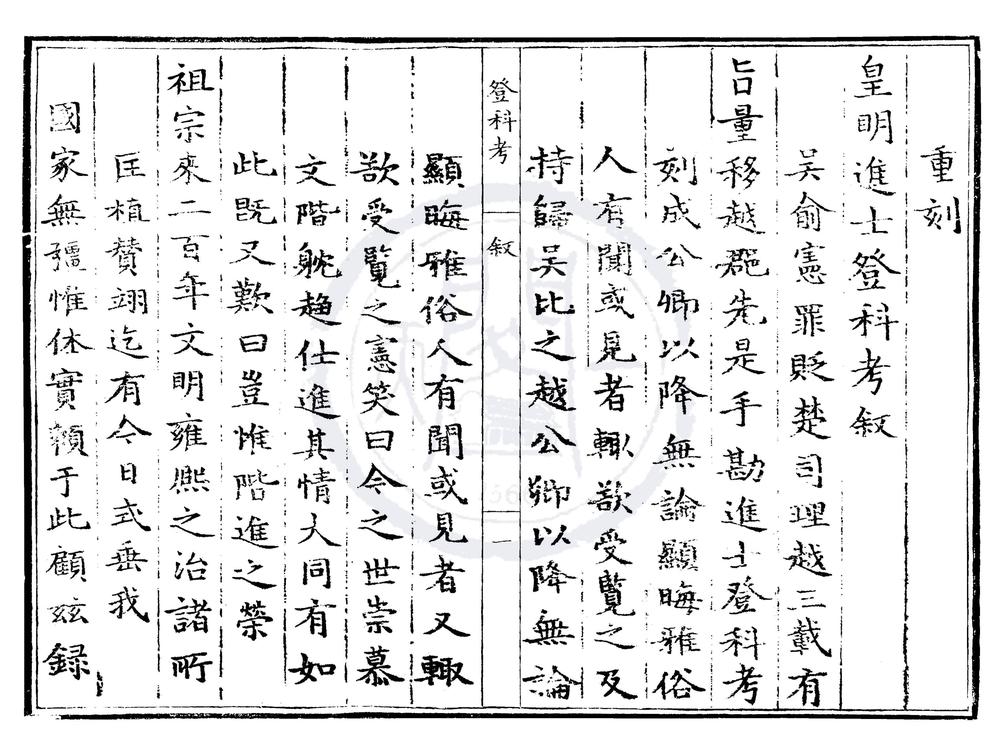 重刻
皇明進士登科考叙
吴俞憲罪貶楚司理越三載有
㫖量移越郡先是手勘進士登科考
刻成公卿以降無論顯晦雅俗
人有聞或見者輙欲受覽之及
持歸吴比之越公卿以降無論
登科考 叙 一
顯晦雅俗人有聞或見者又輙
欲受覽之憲笑曰今之世崇慕
文階躭趋仕進其情大同有如
此旣又歎曰豈惟階進之榮
祖宗來二百年文明雍熙之治諸所
匡植賛翊迄有今日式垂我
國家無疆惟休實賴于此顧玆録